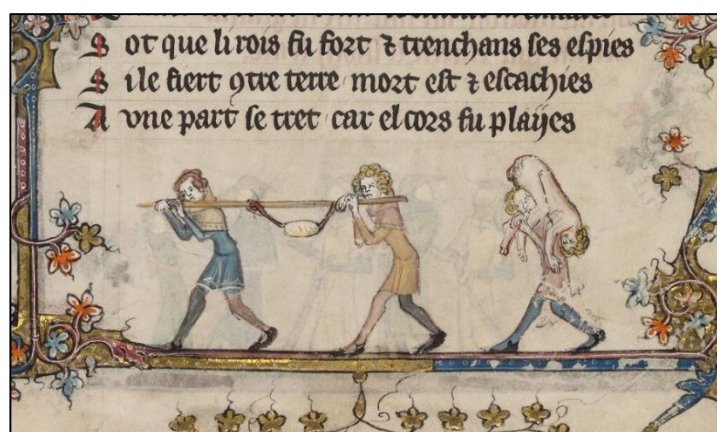 S ot que li rois fu fort ⁊ trenchans ses espies
S il e fiert ꝯtre terre mort est ⁊ escachies
A vne part se tret car el cors fu plaijes